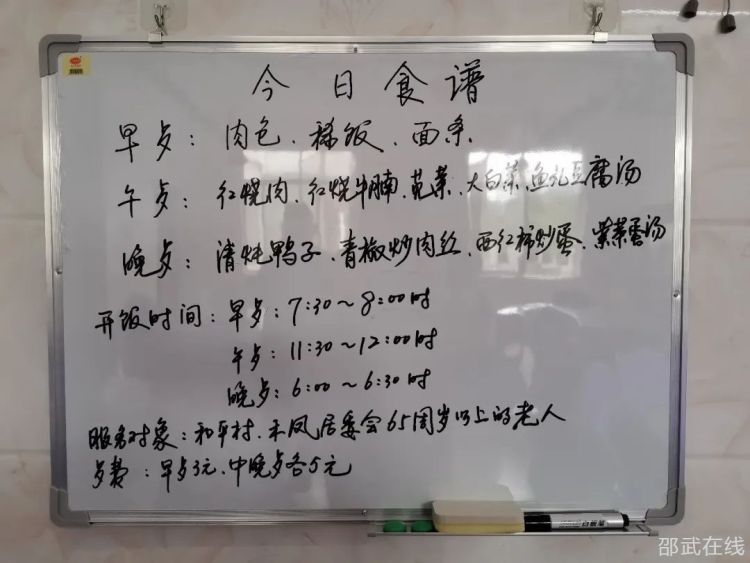 今日食谱
早歺：肉包、稀饭、面条
午歺：红烧肉、红烧牛腩、苋菜、大白菜、鱼丸豆腐汤
晚歺：清炖鸭子、青椒炒肉丝、西红柿炒蛋、紫菜蛋汤
开饭时间：早歺：7:30～8:00时
午歺：11:30～12:00时
晚歺：6:00～6:30时
服务对象：和平村、禾凤居委会65周岁以上的老人
歺费：早歺3元、中晚歺各5元
白板笔
邵武在线